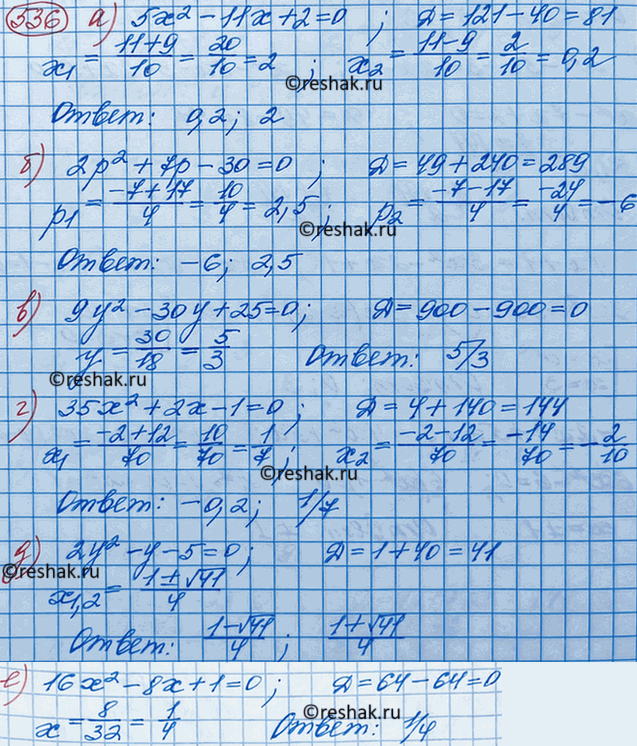 536 а) 5x² - 11x + 2 = 0 ; Д = 121 - 40 = 81
x₁ = (11+9)/10 = 20/10 = 2 ; x₂ = (11-9)/10 = 2/10 = 0,2
©reshak.ru
Ответ: 0,2 ; 2
б) 2p² + 7p - 30 = 0 ; Д = 49 + 240 = 289
p₁ = (-7+17)/4 = 10/4 = 2,5 ; p₂ = (-7-17)/4 = -24/4 = -6
©reshak.ru
Ответ: -6 ; 2,5
в) 9y² - 30y + 25 = 0 ; Д = 900 - 900 = 0
y = 30/18 = 5/3 Ответ: 5/3
©reshak.ru
г) 35x² + 2x - 1 = 0 ; Д = 4 + 140 = 144
x₁ = (-2+12)/70 = 10/70 = 1/7 ; x₂ = (-2-12)/70 = -14/70 = -2/10
©reshak.ru
Ответ: -0,2 ; 1/7
д) 2y² - y - 5 = 0 ; Д = 1 + 40 = 41
©reshak.ru
x₁,₂ = (1±√41)/4
Ответ: (1-√41)/4 ; (1+√41)/4
е) 16x² - 8x + 1 = 0 ; Д = 64 - 64 = 0
x = 8/32 = 1/4 Ответ: 1/4
©reshak.ru